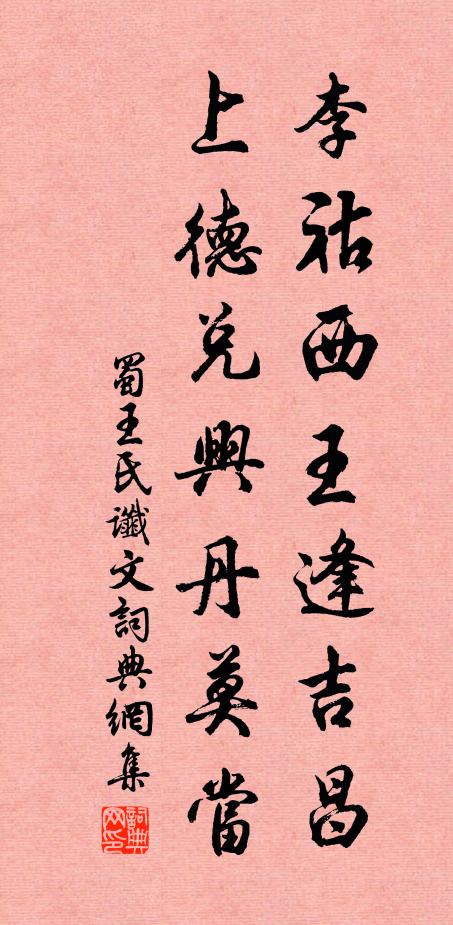 李祜西王逢吉昌
上德兌興丹莫當
蜀王氏讖文詞典網集
詞典网印